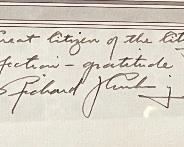 Great citizen of the City
fection - gratitude
Richard